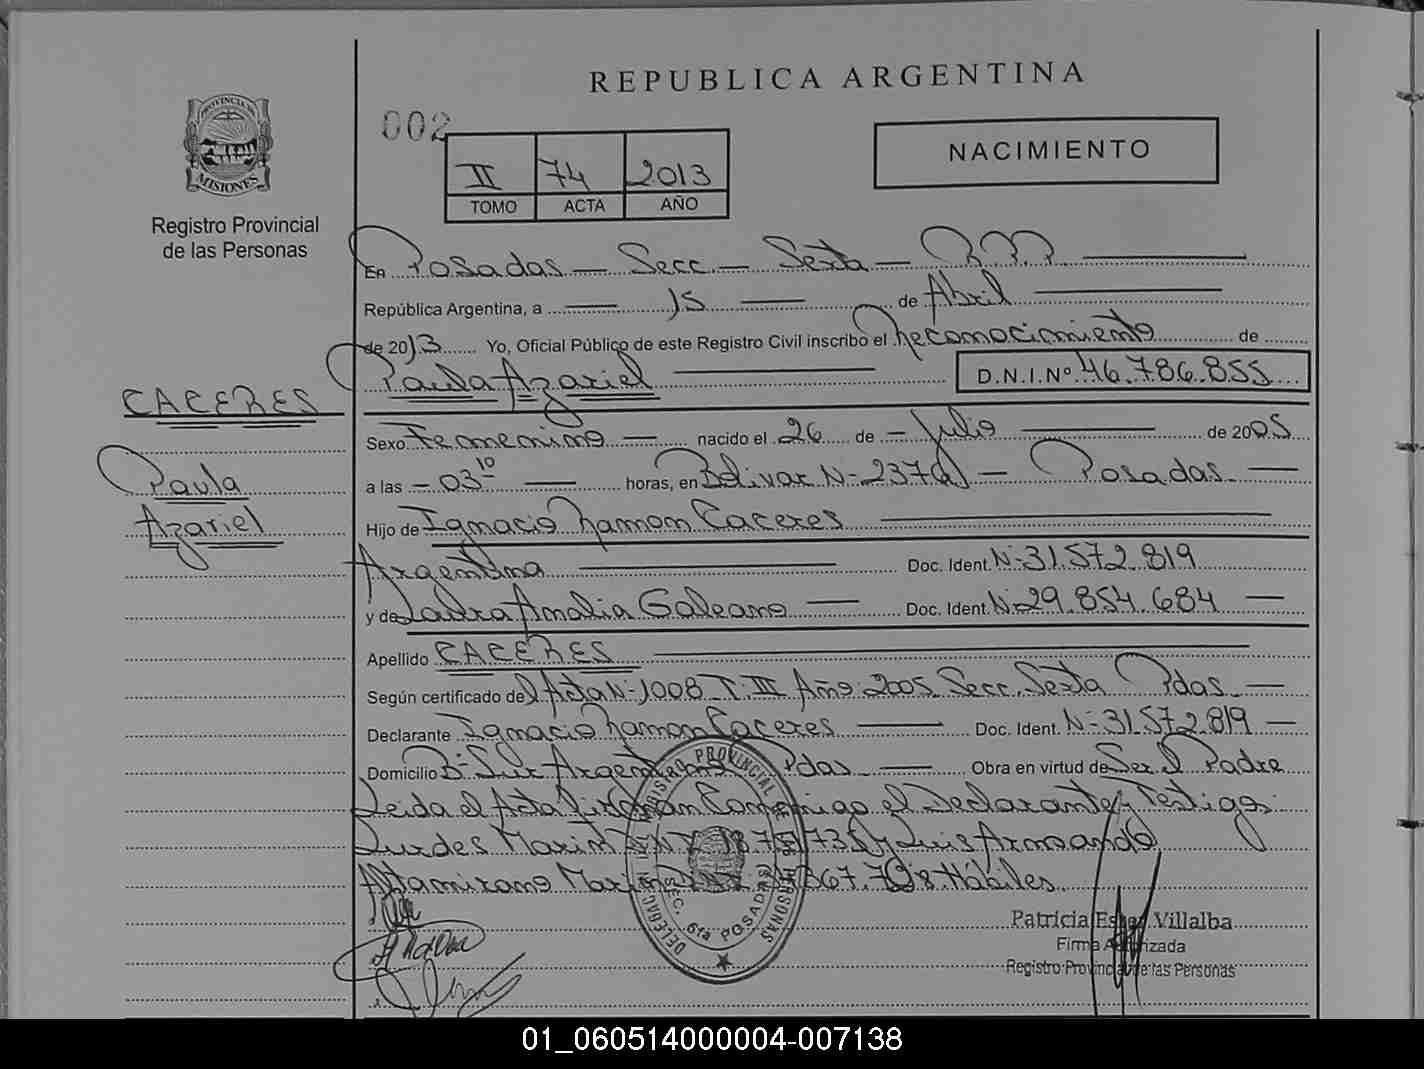 REPUBLICA ARGENTINA
PROVINCIA DE
MISIONES
Registro Provincial
de las Personas
002
II 74 2013
TOMO ACTA AÑO
NACIMIENTO
En Posadas — Secc. — Sexta —
República Argentina, a — 15 — de Abril —
de 2013 Yo, Oficial Público de este Registro Civil inscribo el Reconocimiento de
Paula Azariel — D.N.I.Nº 46.786.855
CACERES
Paula
Azariel
Sexo Femenino — nacido el 26 de — Julio — de 2005
a las — 03 10 — horas, en Bolivar N- 2376 — Posadas —
Hijo de Ignacio Ramon Caceres —
Argentina — Doc. Ident. N- 31.572.819
y de Laura Amalia Galeano — Doc. Ident. N- 29.854.684 —
Apellido CACERES —
Según certificado del Acta N- 1008 T- III Año 2005 Secc. Sexta Pdas —
Declarante Ignacio Ramon Caceres — Doc. Ident. N- 31.572.819 —
Domicilio B- Sur Argentino Pdas — Obra en virtud de Ser el Padre
Leida el Acta firman Conmigo el Declarante y Testigos
Lurdes y Luis Armando
Altamirano Hábiles
DELEGACION REGISTRO PROVINCIAL DE LAS PERSONAS
SEC. 6ta POSADAS
Patricia Ester Villalba
Firma Autorizada
Registro Provincial de las Personas
01_060514000004-007138